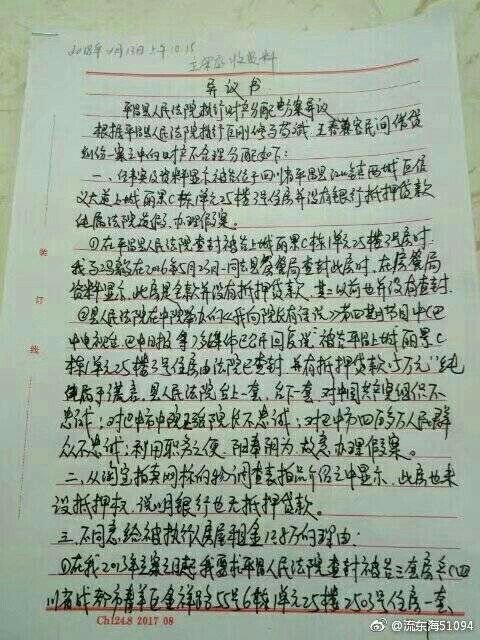 2018年4月13日上午10.15
立案庭收材料
异议书
平昌县人民法院执行财产分配方案异议
根据平昌县人民法院执行 民间借贷
纠纷一案之中的财产不合理分配如下:
一、 资料显示被告位于四川省平昌县江口镇西城区信
义大道上城丽景C栋1单元25楼3号住房并没有银行抵押贷款
纯属法院造假,办理假案。
①在平昌县人民法院查封被告上城丽景C栋1单元25楼3号房时,
我与冯毅在2016年5月23日一同去县房管局查封此房时,在房管局
资料显示,此房是全款并没有抵押贷款,其二以前也并没有查封,
②县人民法院在中院举办的《 向院长有话说》第四期节目中(巴
中电视台、巴中日报等7家媒体已公开回复说"被告平昌上城丽景C
栋1单元25楼3号住房由法院已查封,并有抵押贷款 5万元"纯
属于谎言,县人民法院台上一套,台下一套,对中国共产党组织不
忠诚;对巴中市中院 院长不忠诚;对巴中市四百多万人民群
众不忠诚;利用职务之便,阳奉阴为,故意办理假案。
二、从淘宝拍卖网标的物调查表拍品介绍之中显示,此房也未
设抵押权,说明银行也无抵押贷款。
三、不同意给被执行人房屋租金12.8万的理由:
①在我2013年立案之日起我要求平昌县人民法院查封被告三套房产(四
川省成都市 区金祥路55号6栋1单元25楼2503号住房一套、
装
订
线
Ch124.8 2017 08
@流东海51094